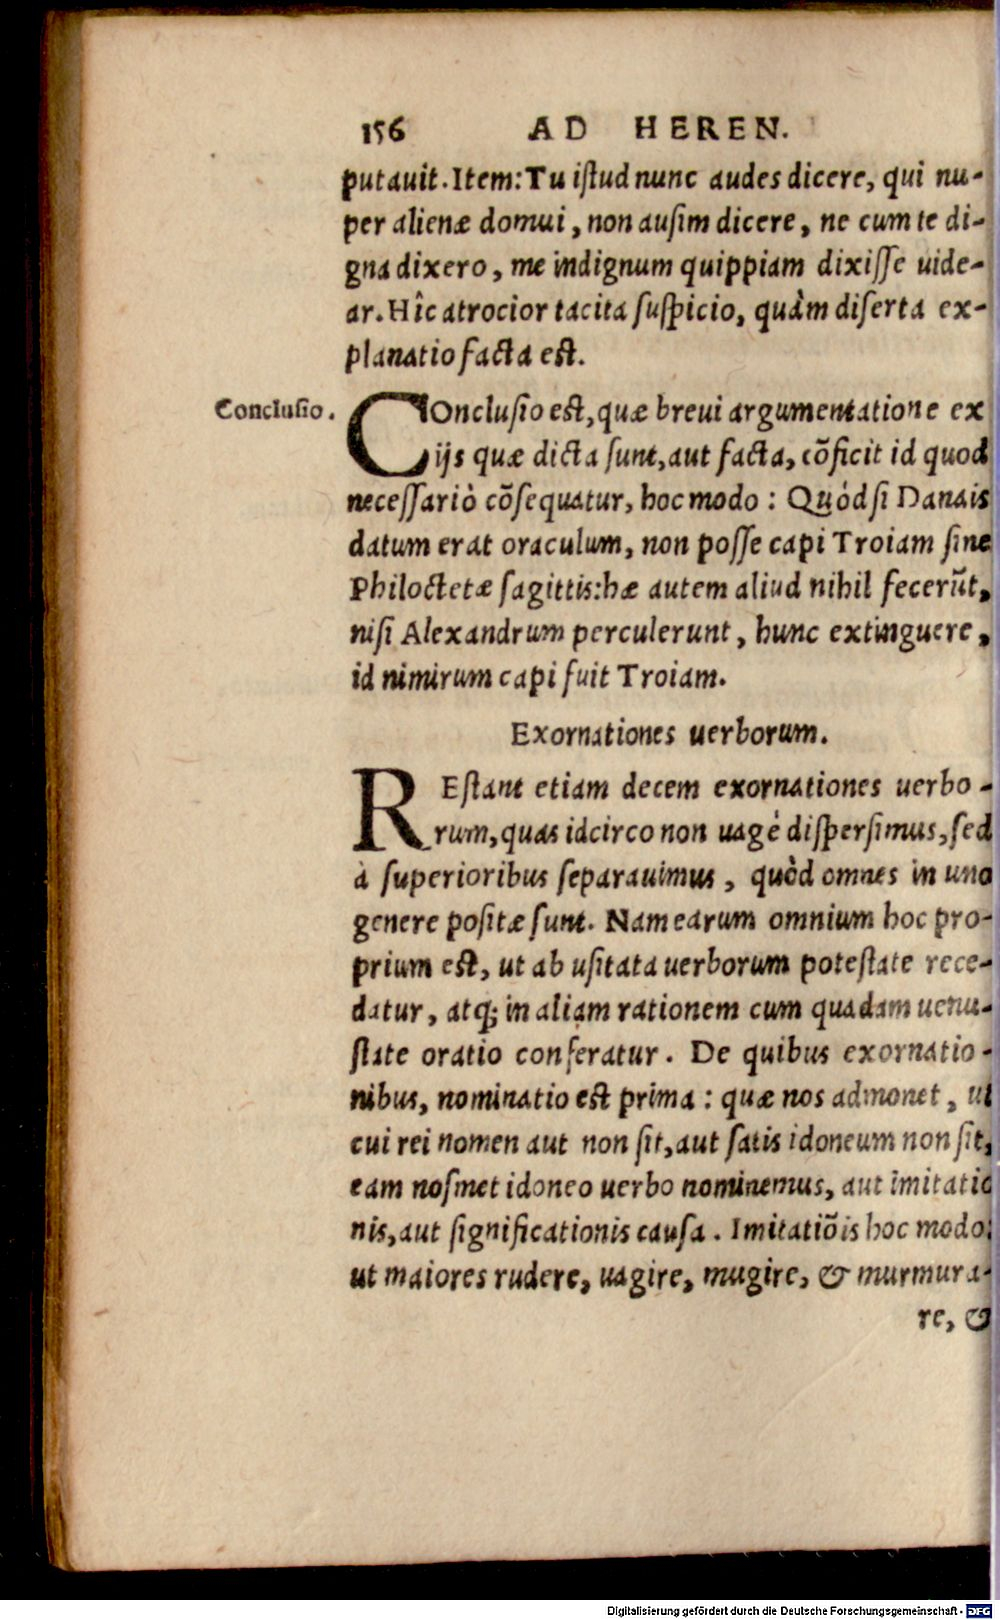 156 AD HEREN.
putauit. Item: Tu istud nunc audes dicere, qui nu-
per alienæ domui, non ausim dicere, ne cum te di-
gna dixero, me indignum quippiam dixisse uide-
ar. Hîc atrocior tacita suspicio, quàm diserta ex-
planatio facta est.
Conclusio.
COnclusio est, quæ breui argumentatione ex
ijs quæ dicta sunt, aut facta, cōficit id quod
necessariò cōsequatur, hoc modo: Quód si Danais
datum erat oraculum, non posse capi Troiam sine
Philoctetæ sagittis: hæ autem aliud nihil fecerūt,
nisi Alexandrum perculerunt, hunc extinguere,
id nimirum capi fuit Troiam.
Exornationes uerborum.
REstant etiam decem exornationes uerbo-
rum, quas idcirco non uagè dispersimus, sed
à superioribus separauimus, quòd omnes in uno
genere positæ sunt. Nam earum omnium hoc pro-
prium est, ut ab usitata uerborum potestate rece-
datur, atq; in aliam rationem cum quadam uenu-
state oratio conferatur. De quibus exornatio-
nibus, nominatio est prima: quæ nos admonet, ut
cui rei nomen aut non sit, aut satis idoneum non sit,
eam nosmet idoneo uerbo nominemus, aut imitatio
nis, aut significationis causa. Imitatiōis hoc modo:
ut maiores rudere, uagire, mugire, & murmura-
re, &
Digitalisierung gefördert durch die Deutsche Forschungsgemeinschaft - DFG